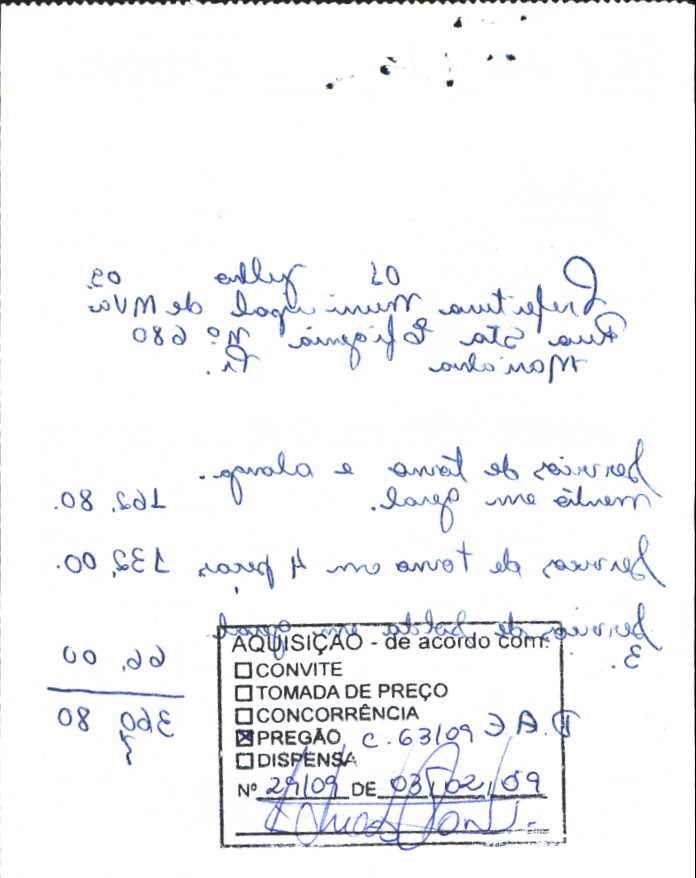 01 julho 09.
Prefeitura Municipal de Mva
Rua Sta Efigenia Nº 680
Marialva Pr.
Servicos de torno e alonga-
mento em geral. 162,80.
Servicos de torno em 4 peças 132,00.
Servicos de solda em geral
3. 66,00
360,80
AQUISIÇÃO - de acordo com:
CONVITE
TOMADA DE PREÇO
CONCORRÊNCIA
PREGÃO C. 63/09
DISPENSA
Nº 29/09 DE 03/02/09